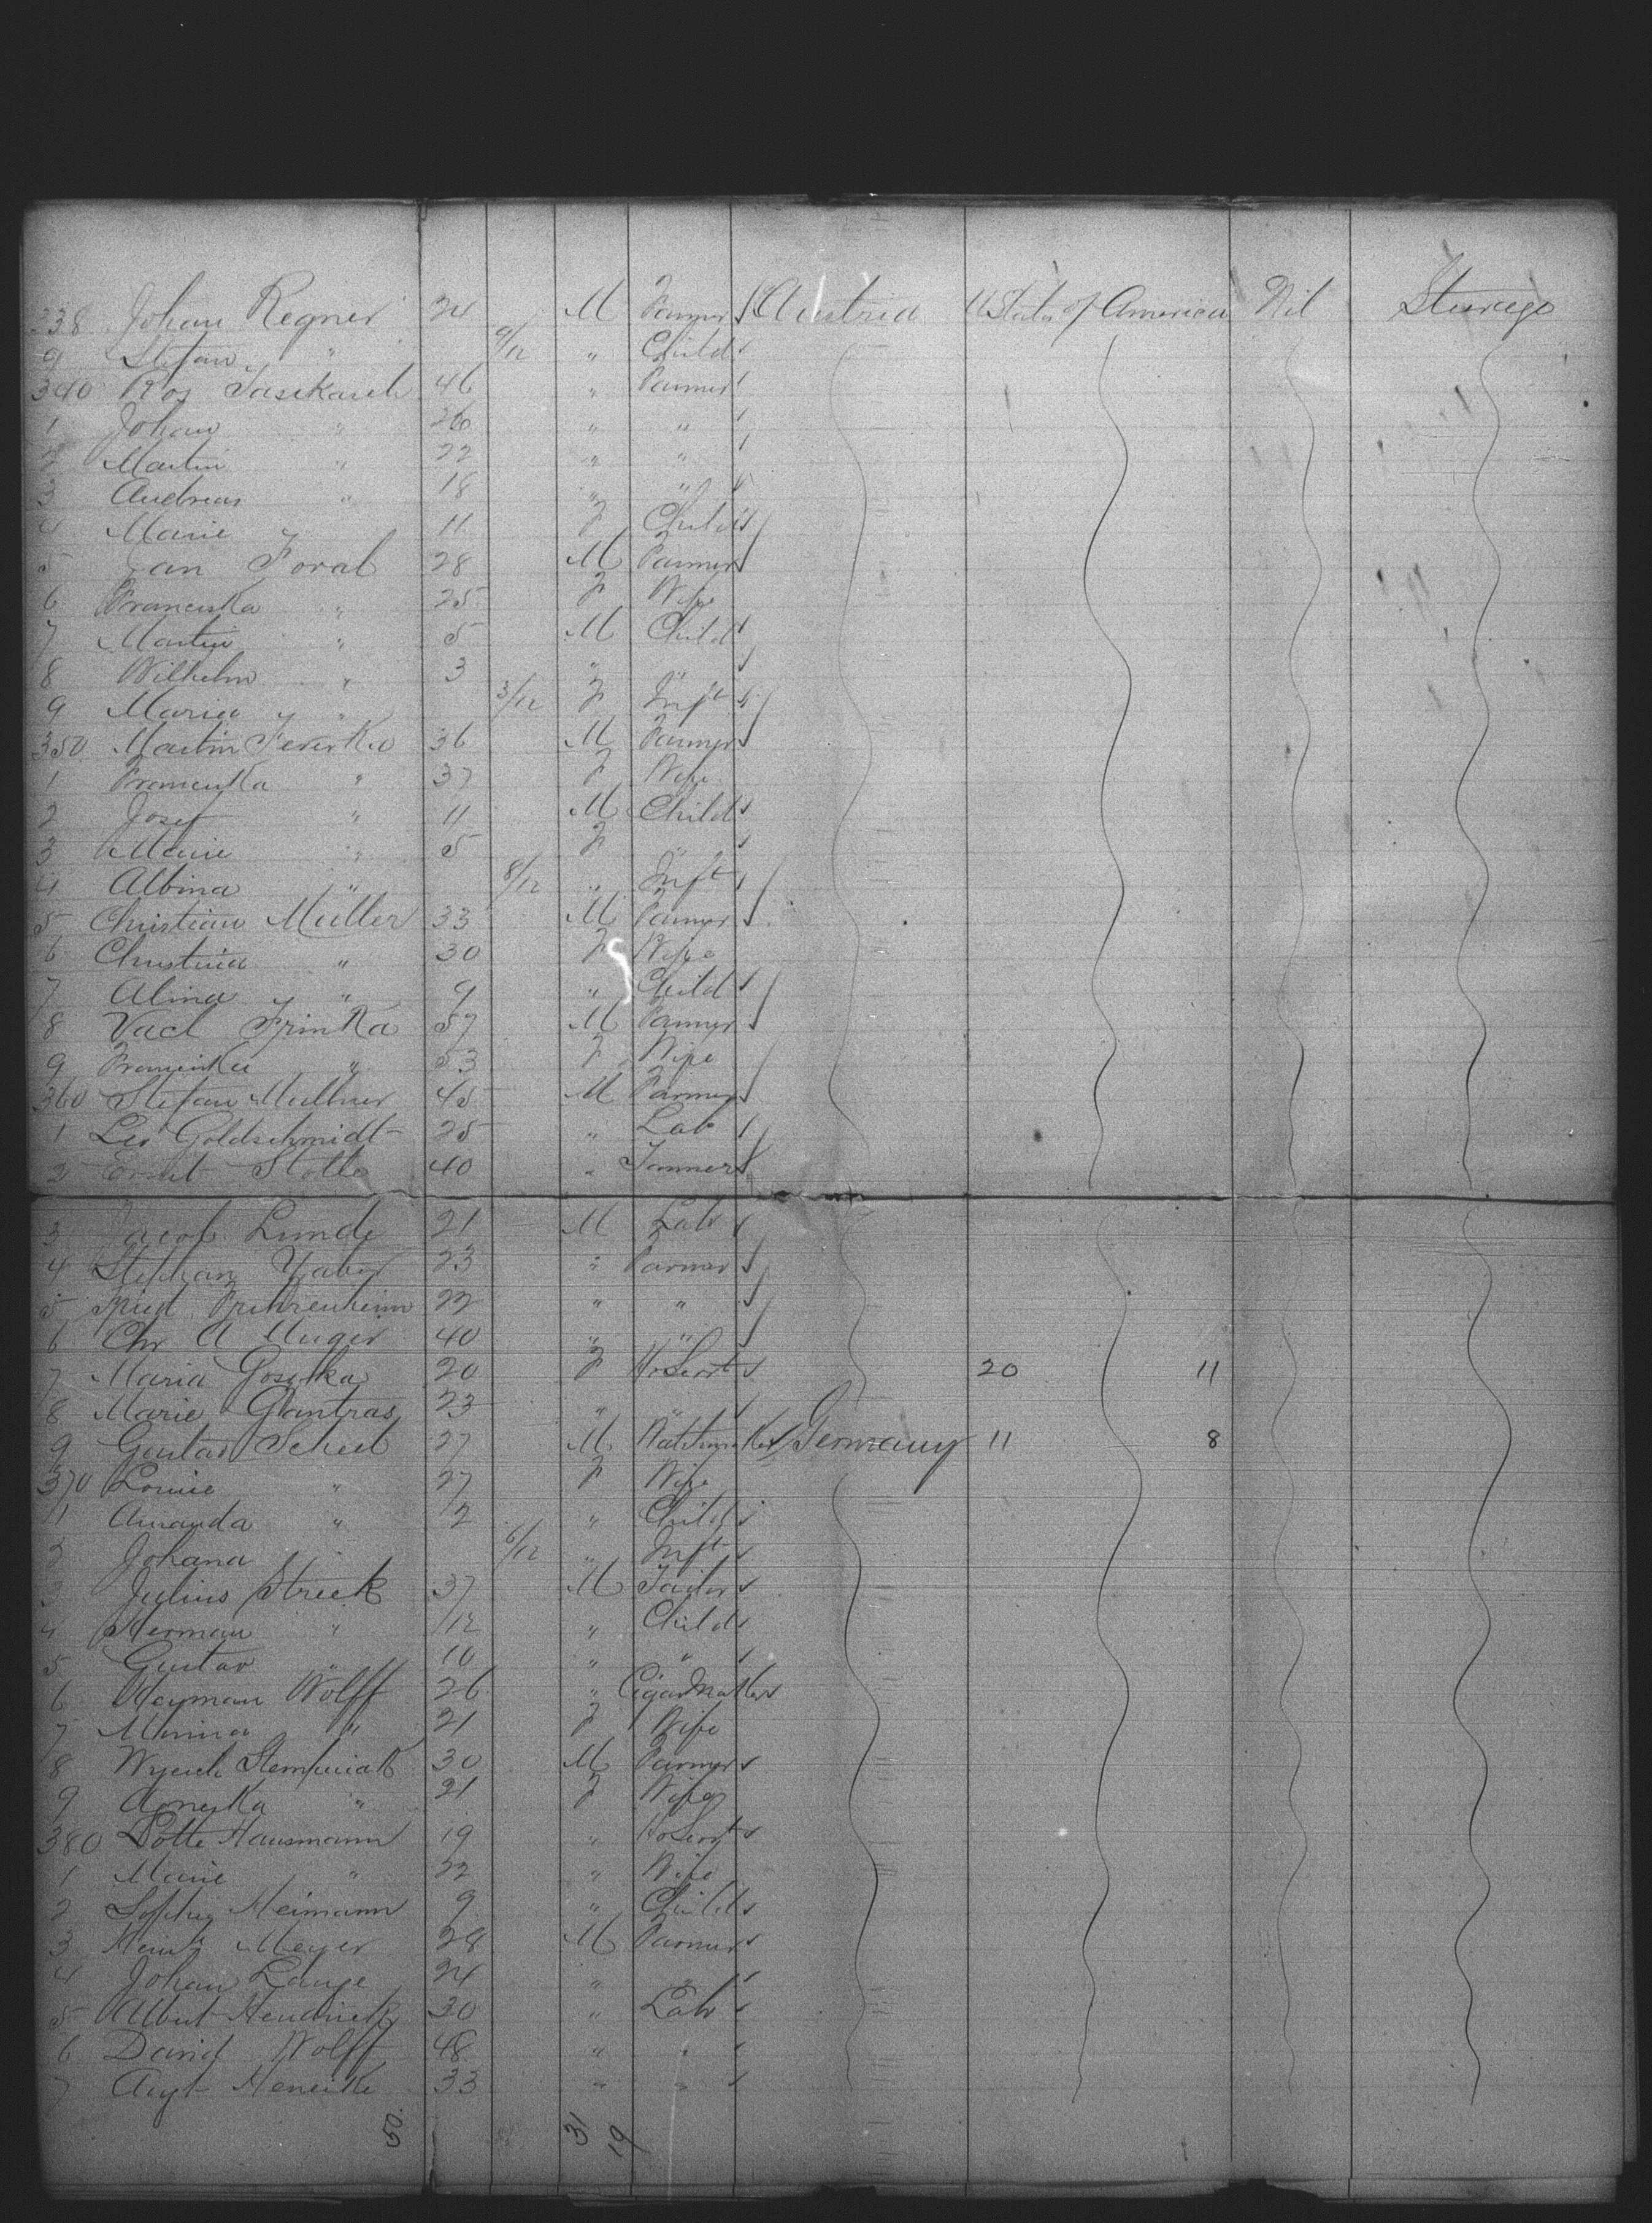 338 Johan Regner 24 M Farmer Austria U States of America Nil Steerage
9 Stefan " 9/12 " Child
340 Ros 46 " Farmer
1 Johan " 26 " "
2 Martin " 22 " "
3 Andreas " 18 " "
4 Marie " 11 F Child
5 Jan Foral 28 M Farmer
6 Franciska " 25 F Wife
7 Martin " 5 M Child
8 Wilhelm " 3 " "
9 Maria " 3/12 F Inft
350 Martin 36 M Farmer
1 Franciska " 37 F Wife
2 Josef " 11 M Child
3 Marie " 5 F "
4 Albina " 8/12 " Inft
5 Christian Muller 33 M Farmer
6 Christina " 30 F Wife
7 Alina " 9 " Child
8 Vacl 57 M Farmer
9 " 53 F Wife
360 Stefan Mullner 45 M Farmer
1 Leo Goldschmidt 25 " Lab
2 Ernst Stolle 40 " Tanner
3 Jacob Linde 21 M Lab
4 Stephan 23 " Farmer
5 22 " "
6 Chr A Unger 40 " "
7 Maria 20 F Ho Servt 20 11
8 Marie 23 " "
9 Gustav Scheel 27 M Germany 11 8
370 Louise " 27 F Wife
11 Amanda " 12 " Child
2 Johana " 6/12 " Inft
3 Julius Streek 37 M Tailor
4 Herman " 12 " Child
5 Gustav " 10 " "
6 Heyman Wolff 26 " Cigar Maker
7 Minna " 21 F Wife
8 Stempniak 30 M Farmer
9 Agneska " 21 F Wife
380 Lotte Hausmann 19 " Ho Servt
1 Marie " 22 " Wife
2 Sophie Heimann 9 " Child
3 Heinr Meyer 28 M Farmer
4 Johan Lange 24 " "
5 Albert Hendrick 30 " Lab
6 David Wolff 48 " "
7 Augt 33 " "
50 31 19